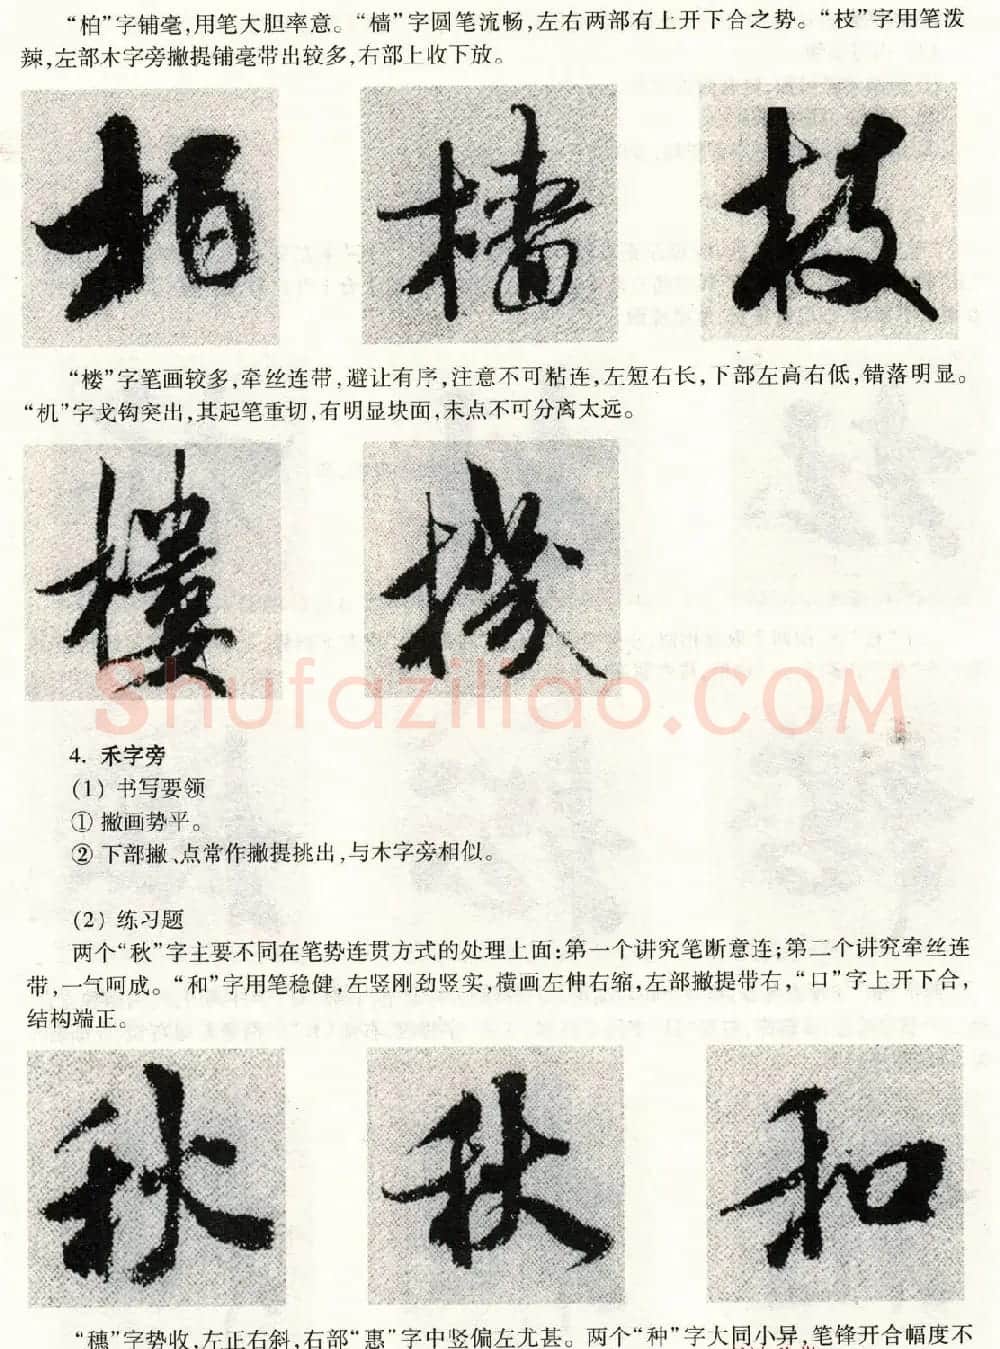 “柏”字铺毫,用笔大胆率意。“樯”字圆笔流畅,左右两部有上开下合之势。“枝”字用笔泼
辣,左部木字旁撇提铺毫带出较多,右部上收下放。
柏 樯 枝
“楼”字笔画较多,牵丝连带,避让有序,注意不可粘连,左短右长,下部左高右低,错落明显。
“机”字戈钩突出,其起笔重切,有明显块面,末点不可分离太远。
樓 機
Shufaziliao.COM
4. 禾字旁
(1) 书写要领
① 撇画势平。
② 下部撇、点常作撇提挑出,与木字旁相似。
(2) 练习题
两个“秋”字主要不同在笔势连贯方式的处理上面:第一个讲究笔断意连;第二个讲究牵丝连
带,一气呵成。“和”字用笔稳健,左竖刚劲竖实,横画左伸右缩,左部撇提带右,“口”字上开下合,
结构端正。
秋 秋 和
“穗”字势收,左正右斜,右部“惠”字中竖偏左尤甚。两个“种”字大同小异,笔锋开合幅度不